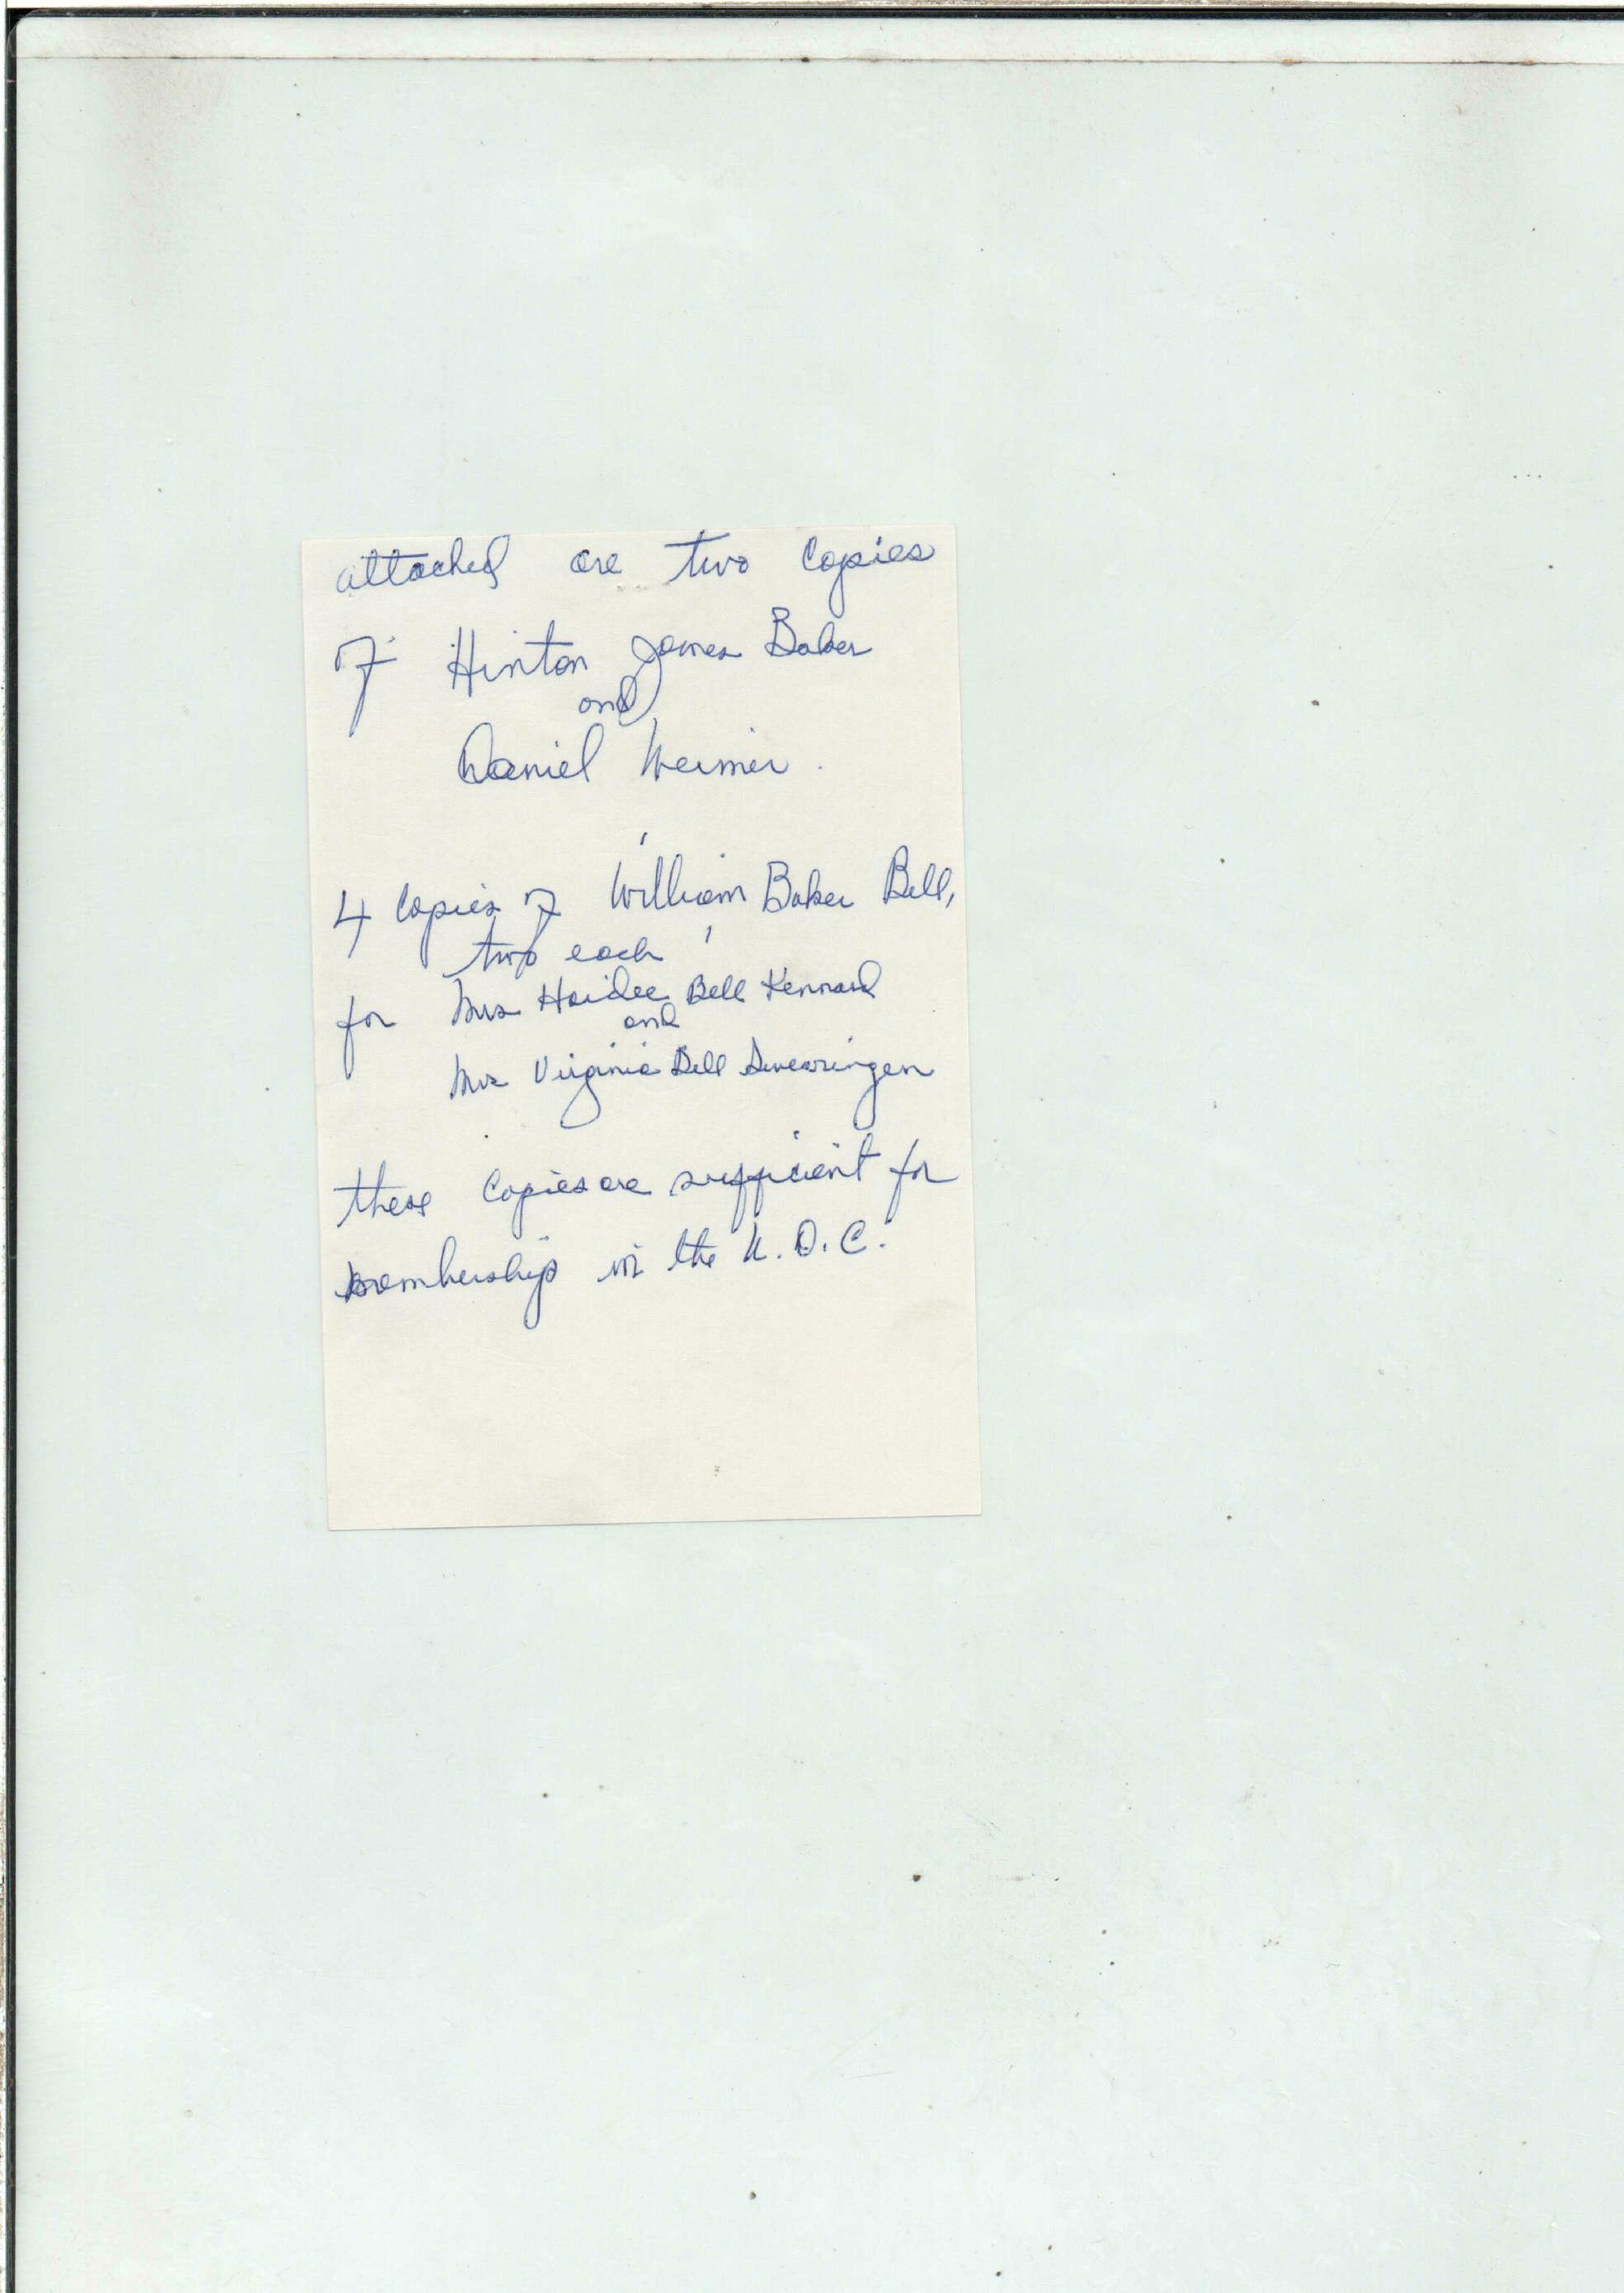 attached are two copies
of Hinton James Baker
and
Daniel Weimer.
4 copies of William Baker Bell,
two each
for Mrs Haidee Bell Kennard
and
Mrs Virginia Bell Swearingen
these copies are sufficient for
membership in the U.D.C.